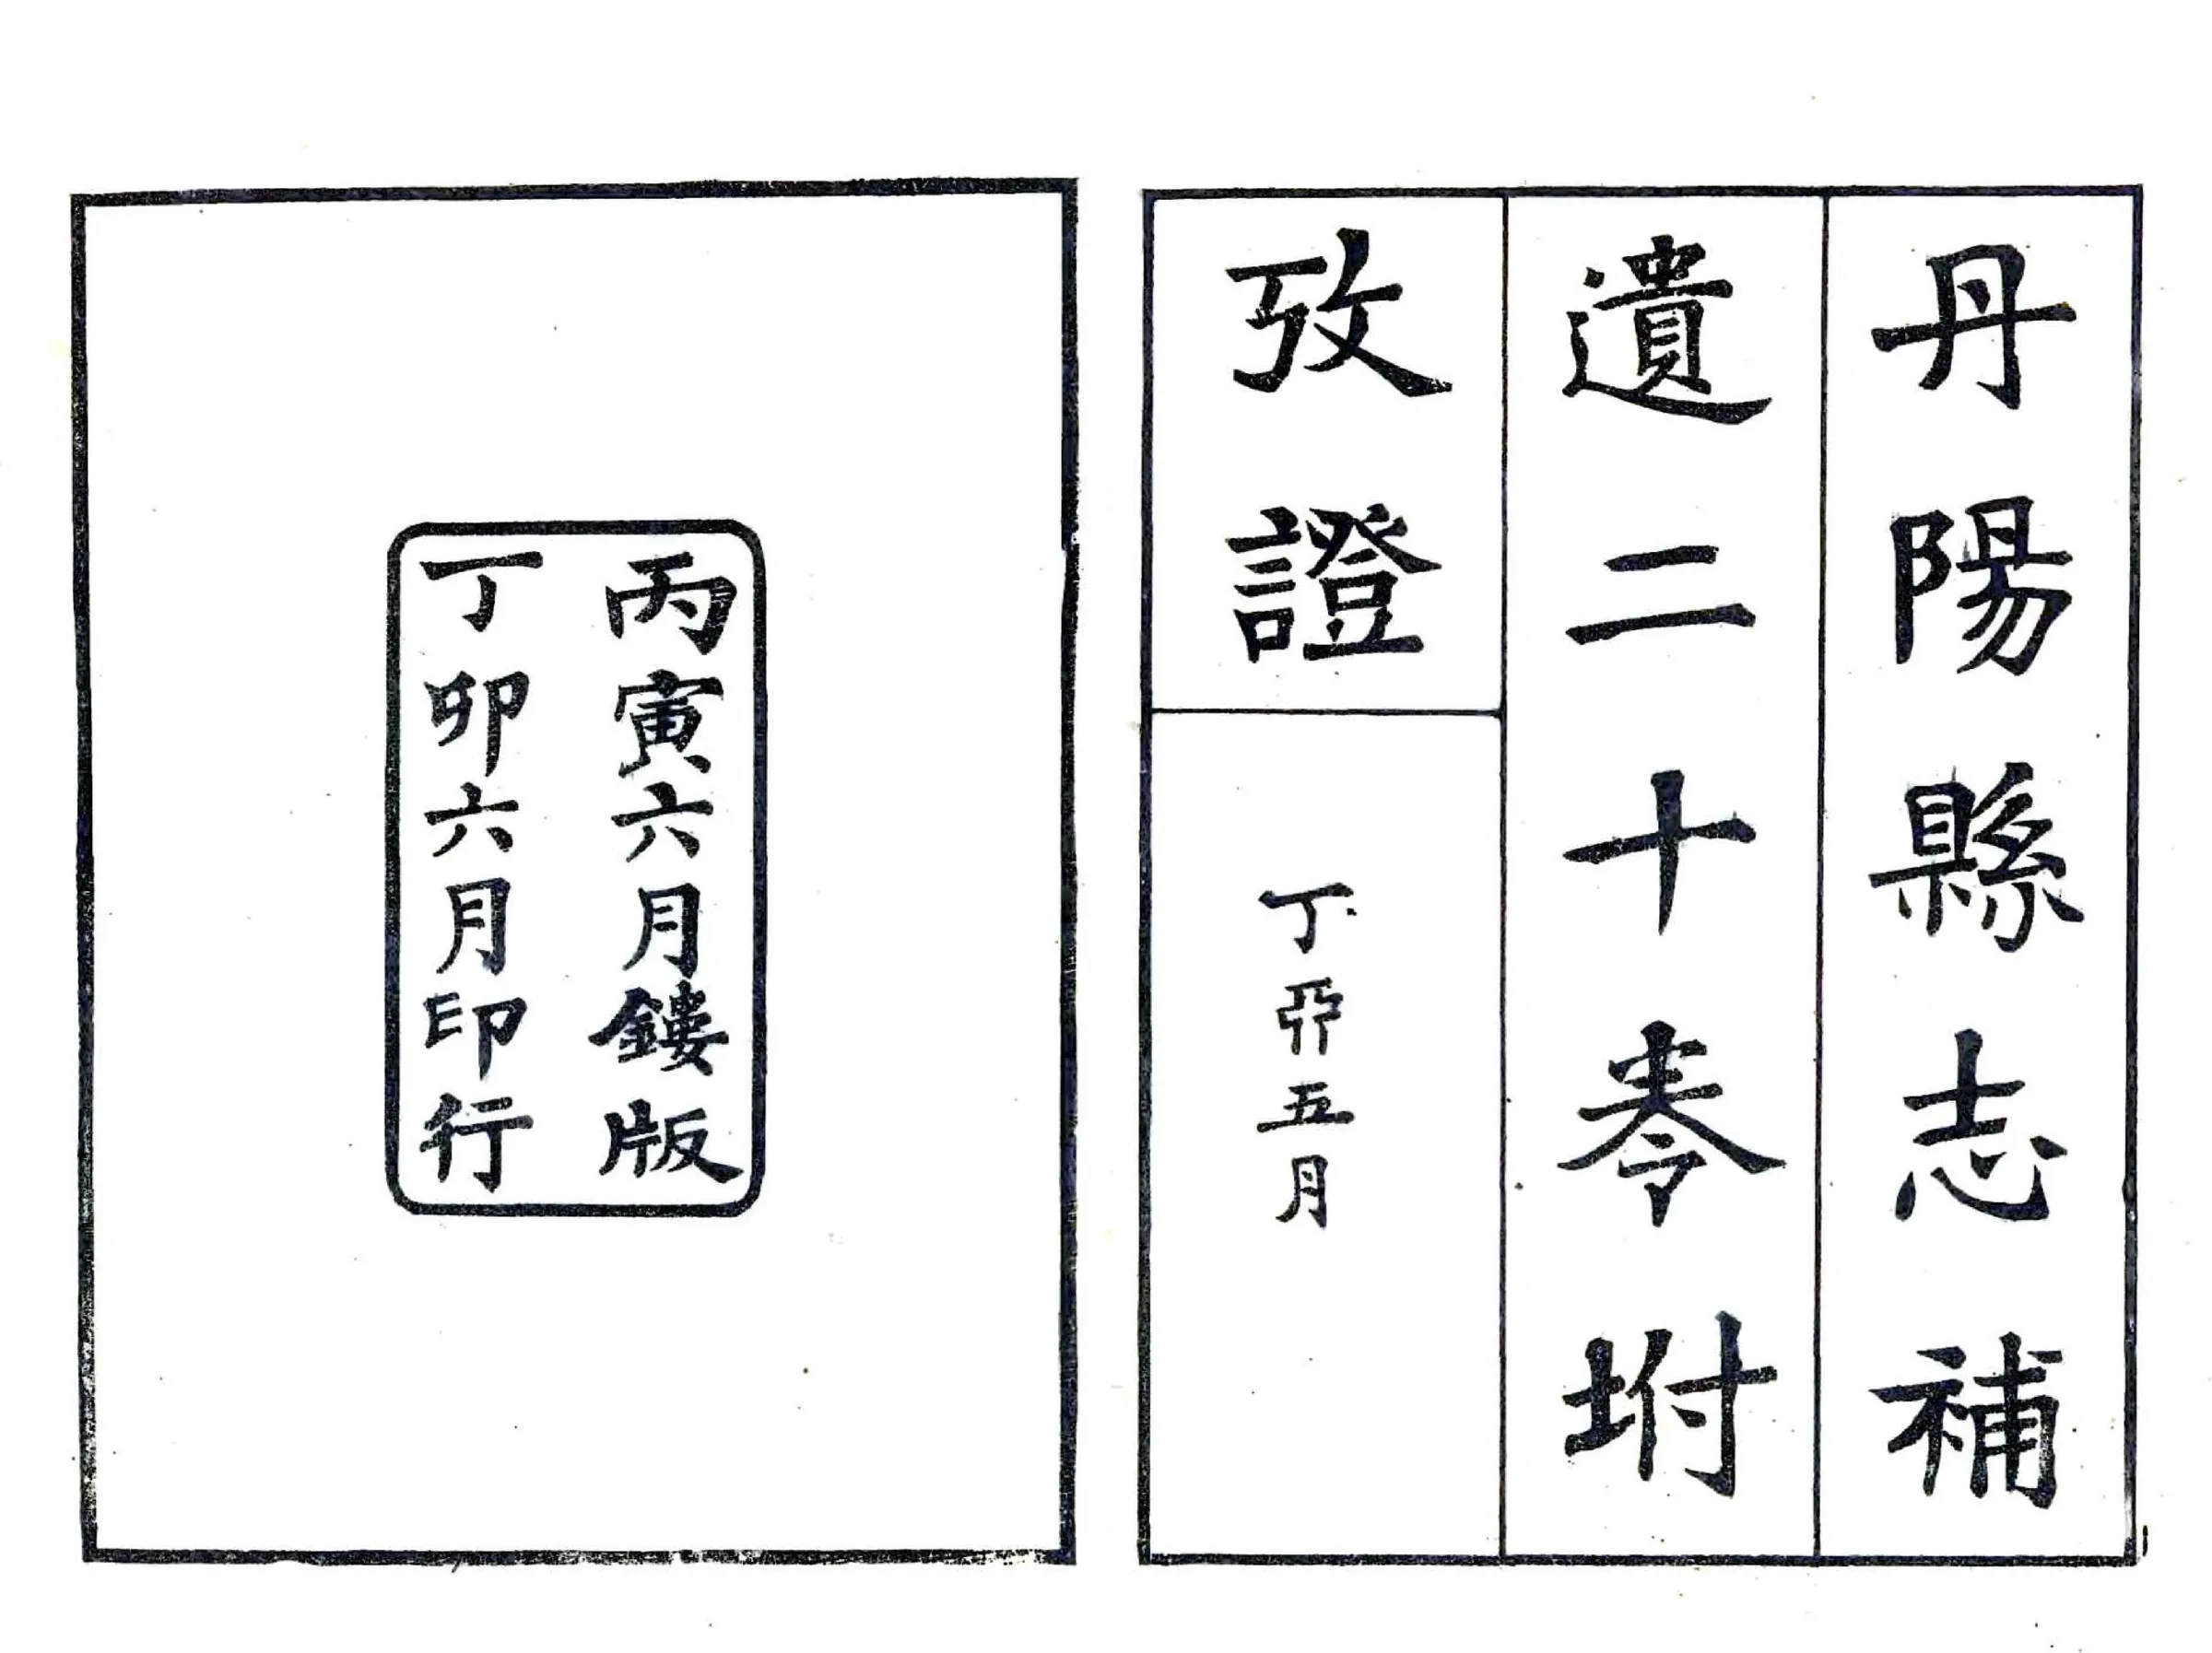 丹陽縣志補
遺二十卷坿
攷證
丁丣五月
丙寅六月鏤版
丁卯六月印行